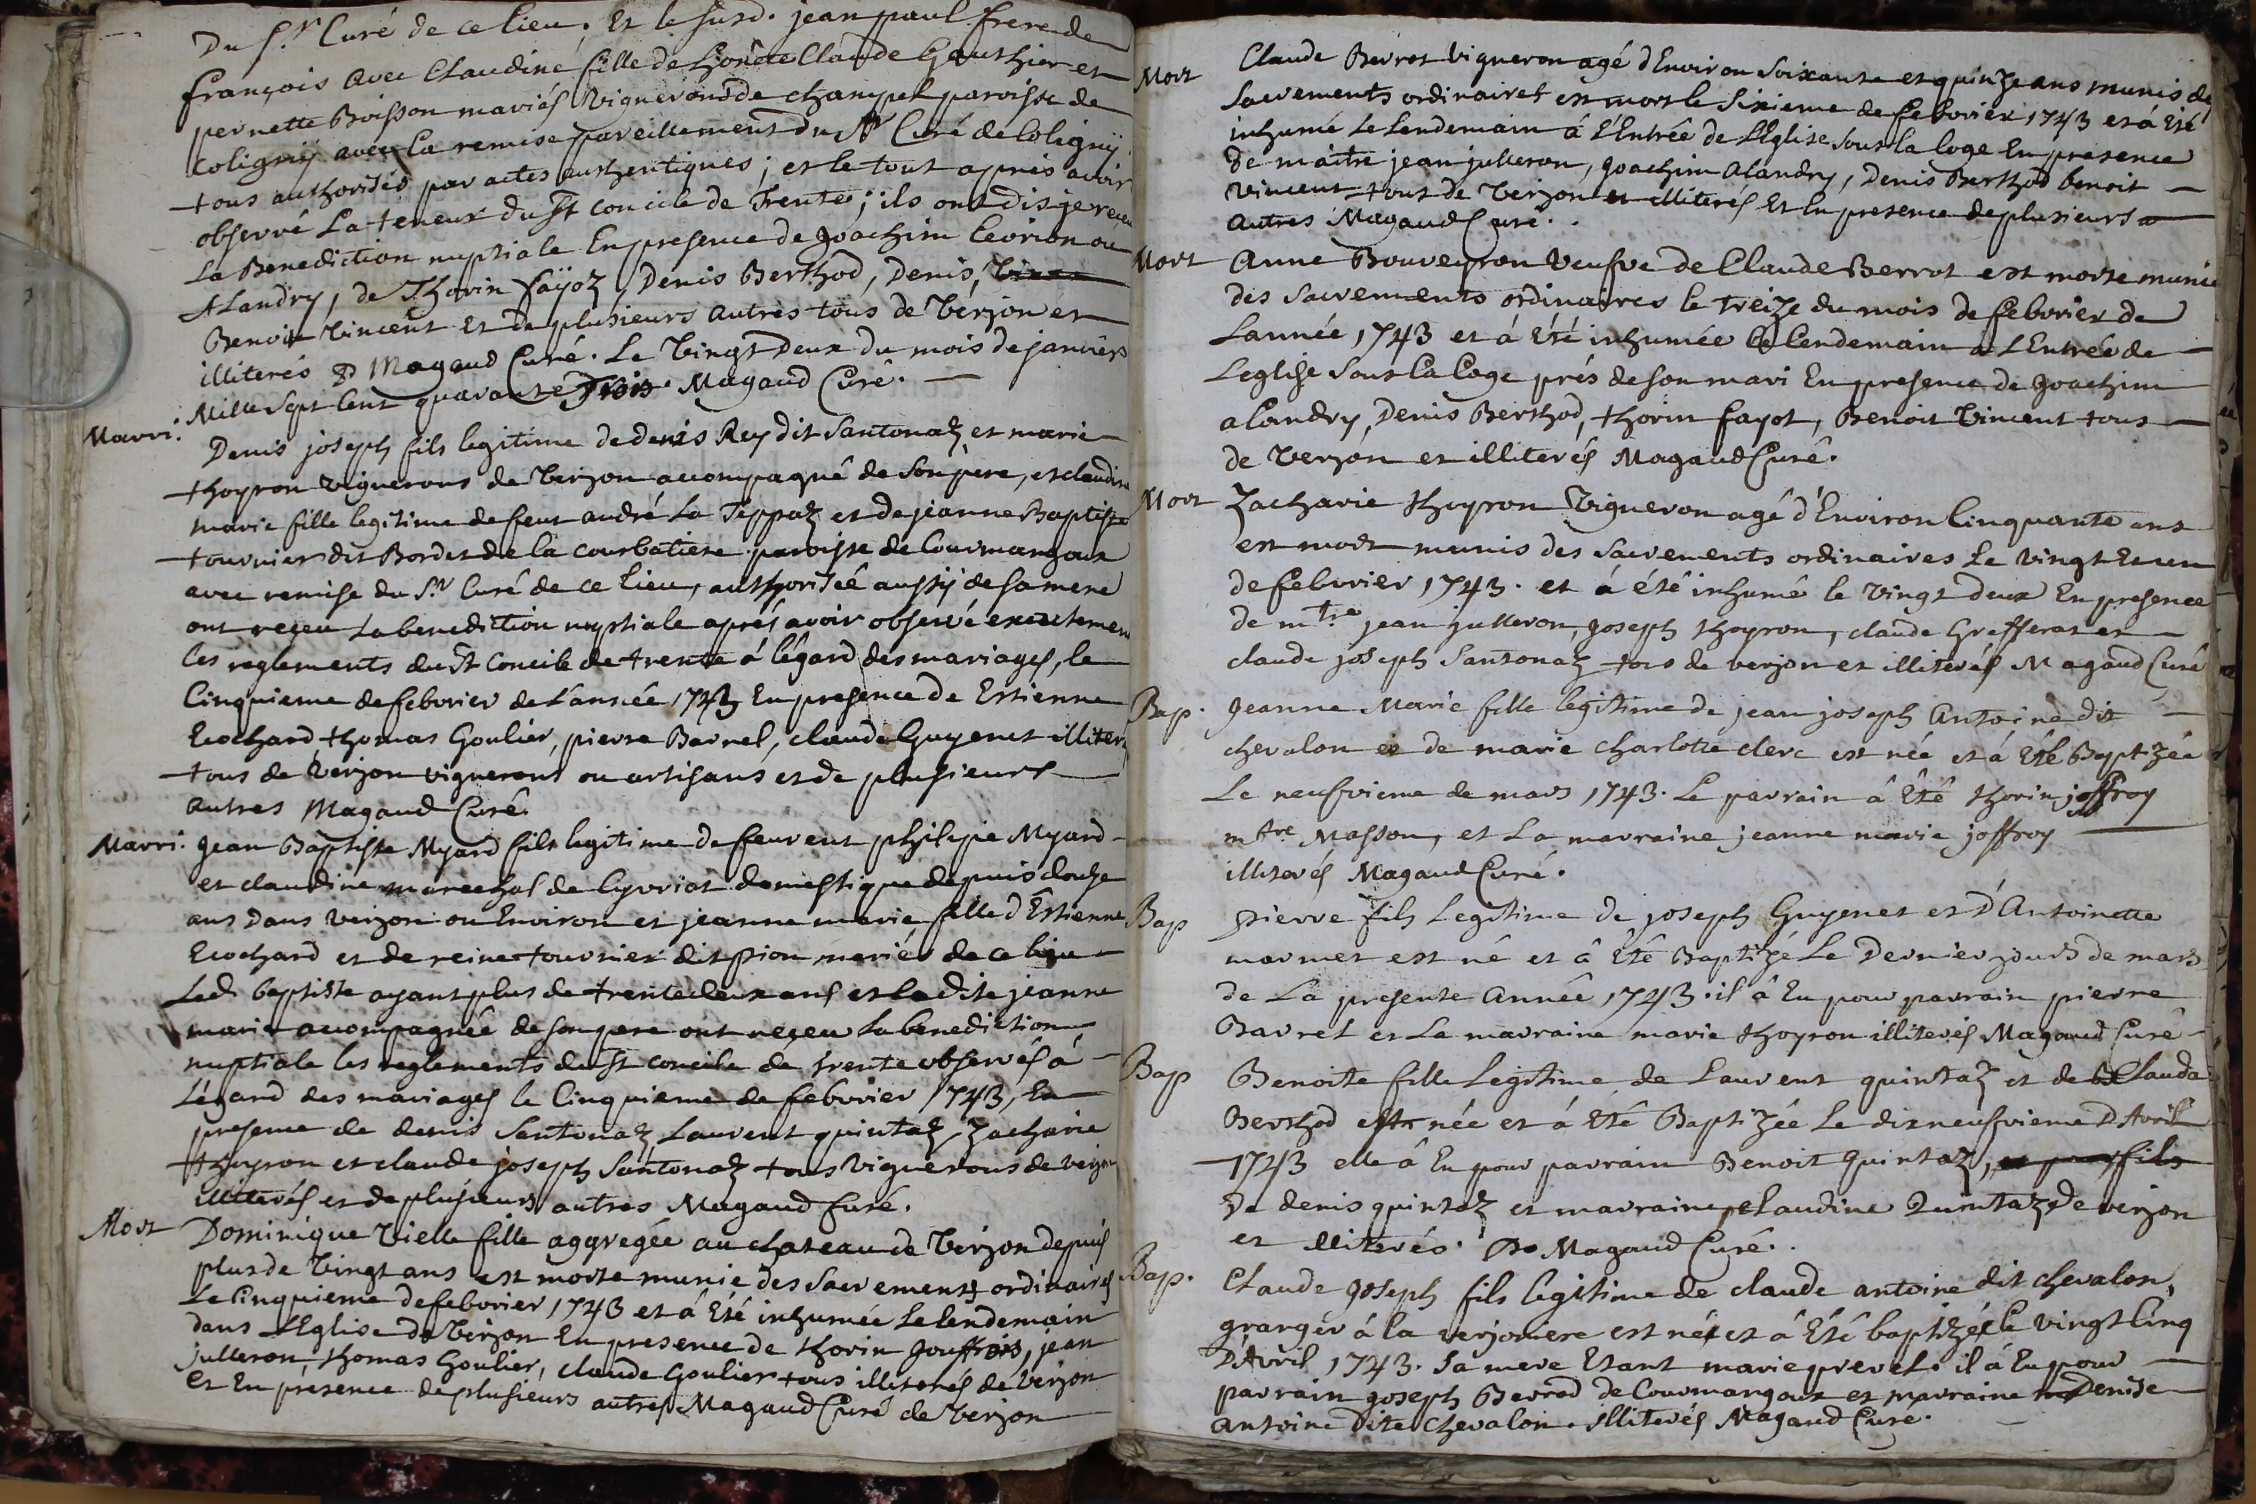 Du S.r Curé de ce lieu. Et le susd. jean paul frere de
françois avec Claudine fille de Claude Gauthier et
pernette Boisson mariés vignerons de champel paroisse de
Coligny avec la remise pareillement du Sr Curé de Coligny
tous authorisés par actes authentiques ; et le tout apres avoir
observé La teneur du St concile de Trente ; ils ont dis je reçeu
La Benediction nuptiale En presence de Joachim
ALandry, de Thorin fayoz, Denis Berthod, Denis,
Benoit Vincent Et de plusieurs autres tous de Verjon et
illiterés Magaud Curé. Le Vingt Deux du mois de janviers
Mille Sept Cent quarante Trois. Magaud Curé.
Marri. Denis joseph fils legitime de denis Rey dit Santonaz et marie
thoyron vignerons de Verjon accompagné de son pere, et claudine
marie fille legitime de feut andré La Teppaz et de jeanne Baptiste
tournier dit Bordet de la courbatiere paroisse de Courmangoux
avec remise du S.r Curé de ce lieu, authorisée aussy de sa mere
ont reçeu La benediction nuptiale aprés avoir observé exactement
les reglements du St Concile de trente á légard des mariages, le
Cinquieme de febvrier de L'année 1743 En presence de Estienne
Ecochard, thomas Goulier, pierre Barrel, claude Guyenet illiter
tous de Verjon vignerons ou artisans et de plusieurs
autres Magaud Curé.
Marri. Jean Baptiste Myard fils legitime de feu philipe Myard
et claudine marechal de Cyvriat domestique depuis douze
ans Dans verjon ou Environ et jeanne marie fille d'Estienne
Ecochard et de reine tournier dit pion mariés de ce lieu
Led. baptiste ayant plus de trente deux ans et la dite jeanne
marie accompagnée de son pere ont reçeu La benediction
nuptiale les reglements du St concile de trente observés á
Légard des mariages le Cinquieme de febvrier 1743, En
presence de denis Santonaz Laurent quintaz, Zacharie
thoyron et claude joseph Santonaz tous vignerons de verjon
illiterés et de plusieurs autres Magaud Curé.
Mort Dominique Vielle fille aggregée au chateau de Verjon depuis
plus de Vingt ans est morte munie des Sacrements ordinaires
Le Cinquieme de febvrier 1743 et á Eté inhumée Le lendemain
dans L'Eglise de Verjon En presence de thorin Jouffrois, jean
Julleron, thomas Goulier, claude Goulier tous illiterés de Verjon
et En présence de plusieurs autres Magaud Curé de Verjon
Mort Claude Berrot Vigneron agé d'Environ Soixante et quinze ans munis des
Sacrements ordinaires est mort le Sixieme de febvrier 1743 et á Eté
inhumé Le Lendemain á L'Entrée de L'Eglise Sous la loge En presence
de maitre jean julleron, Joachim alandry, Denis Berthod benoit
vincent tous de Verjon et illiterés Et En presence de plusieurs
autres Magaud Curé.
Mort Anne Bouveyron veufve de Claude Berrot est morte munie
des Sacrements ordinaires le treize du mois de febvrier de
Lannée 1743 et á Eté inhumée le lendemain a L'Entrée de
Leglise Sous la loge prés de son mari En presence de Joachim
alandry, Denis Berthod, thorin fayot, Benoit Vincent tous
de Verjon et illiterés Magaud Curé.
Mort Zacharie thoyron Vigneron agé d'Environ Cinquante ans
est mort munis des Sacrements ordinaires Le vingt Et un
de febvrier 1743. et á été inhumé le Vingt deux En presence
de m.tre jean julleron, Joseph thoyron, claude Grefferat et
claude joseph Santonaz tous de verjon et illiterés Magaud Curé
Bap. Jeanne Marie fille legitime de jean joseph Antoine dit
chevalon et de marie charlotte clerc est née et á Eté Baptizée
Le neufvieme de mars 1743. Le parrain â Eté thorin joffroy
m.tre Masson, et La marraine jeanne marie joffroy
illiterés Magaud Curé.
Bap pierre fils Legitime de joseph Guyenet et D'Antoinette
marmet est né et â Eté Baptizé Le Dernier jours de mars
de La presente Année 1743. il â Eu pour parrain pierre
Barret et La marraine marie thoyron illiterés Magaud Curé
Bap Benoite fille Legitime de Laurent quintaz et de Clauda
Berthod est née et á Eté Baptizée Le dixneufvieme D'Avril
1743 elle â Eu pour parrain Benoit Quintaz, et pour fils
De denis quintaz et marraine Claudine Quintaz de verjon
et illiterés. Magaud Curé.
Bap. Claude Joseph fils legitime de claude antoine dit chevalon,
granger á la verjoniere est né et â Eté baptizé le vingt Cinq
D'Avril 1743. Sa mere Etant marie prevel. il á Eu pour
parrain joseph Berrod de Courmangoux et marraine Denise
antoine Dite Chevalon. illiterés Magaud Curé.